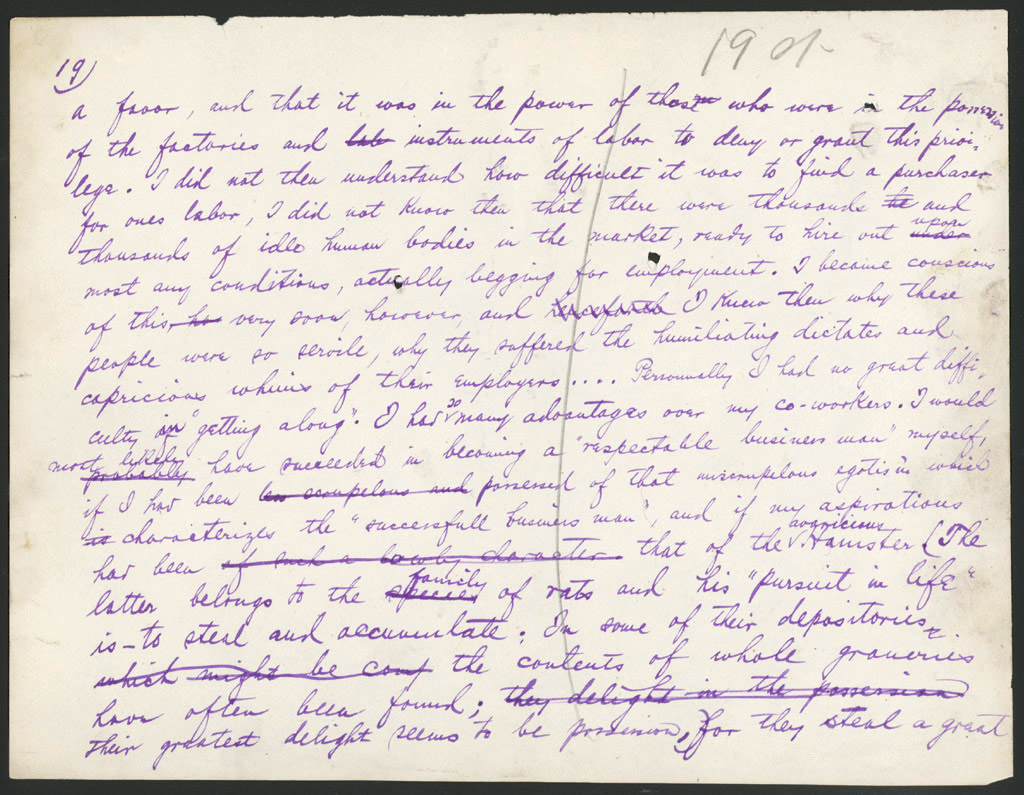 19)
19 a
a favor, and that it was in the power of those who were in the possession
of the factories and lab instruments of labor to deny or grant this privi-
lege. I did not then understand how difficult it was to find a purchaser
for ones labor, I did not know then that there were thousands te and
thousands of idle human bodies in the market, ready to hire out under upon
most any conditions, actually begging for employment. I became conscious
of this, ho very soon, however, and henceforth I knew then why these
people were so servile, why they suffered the humiliating dictates and
capricious whims of their employers.... Personnally I had no great diffi-
culty in "getting along". I had so many advantages over my co-workers. I would
most likely probably have succeeded in becoming a "respectable business man" myself,
if I had been less scrupelous and possessed of that unscrupelous egotism which
is characterizes the "successfull business man", and if my aspirations
had been of such a lowly character that of the avaricious Hamster (The
latter belongs to the species family of rats and his "pursuit in life"
is—to steal and accumulate. In some of their depositories
which might be comp the contents of whole graneries
have often been found; they delight in the possession
their greatest delight seems to be possession, for they steal a great